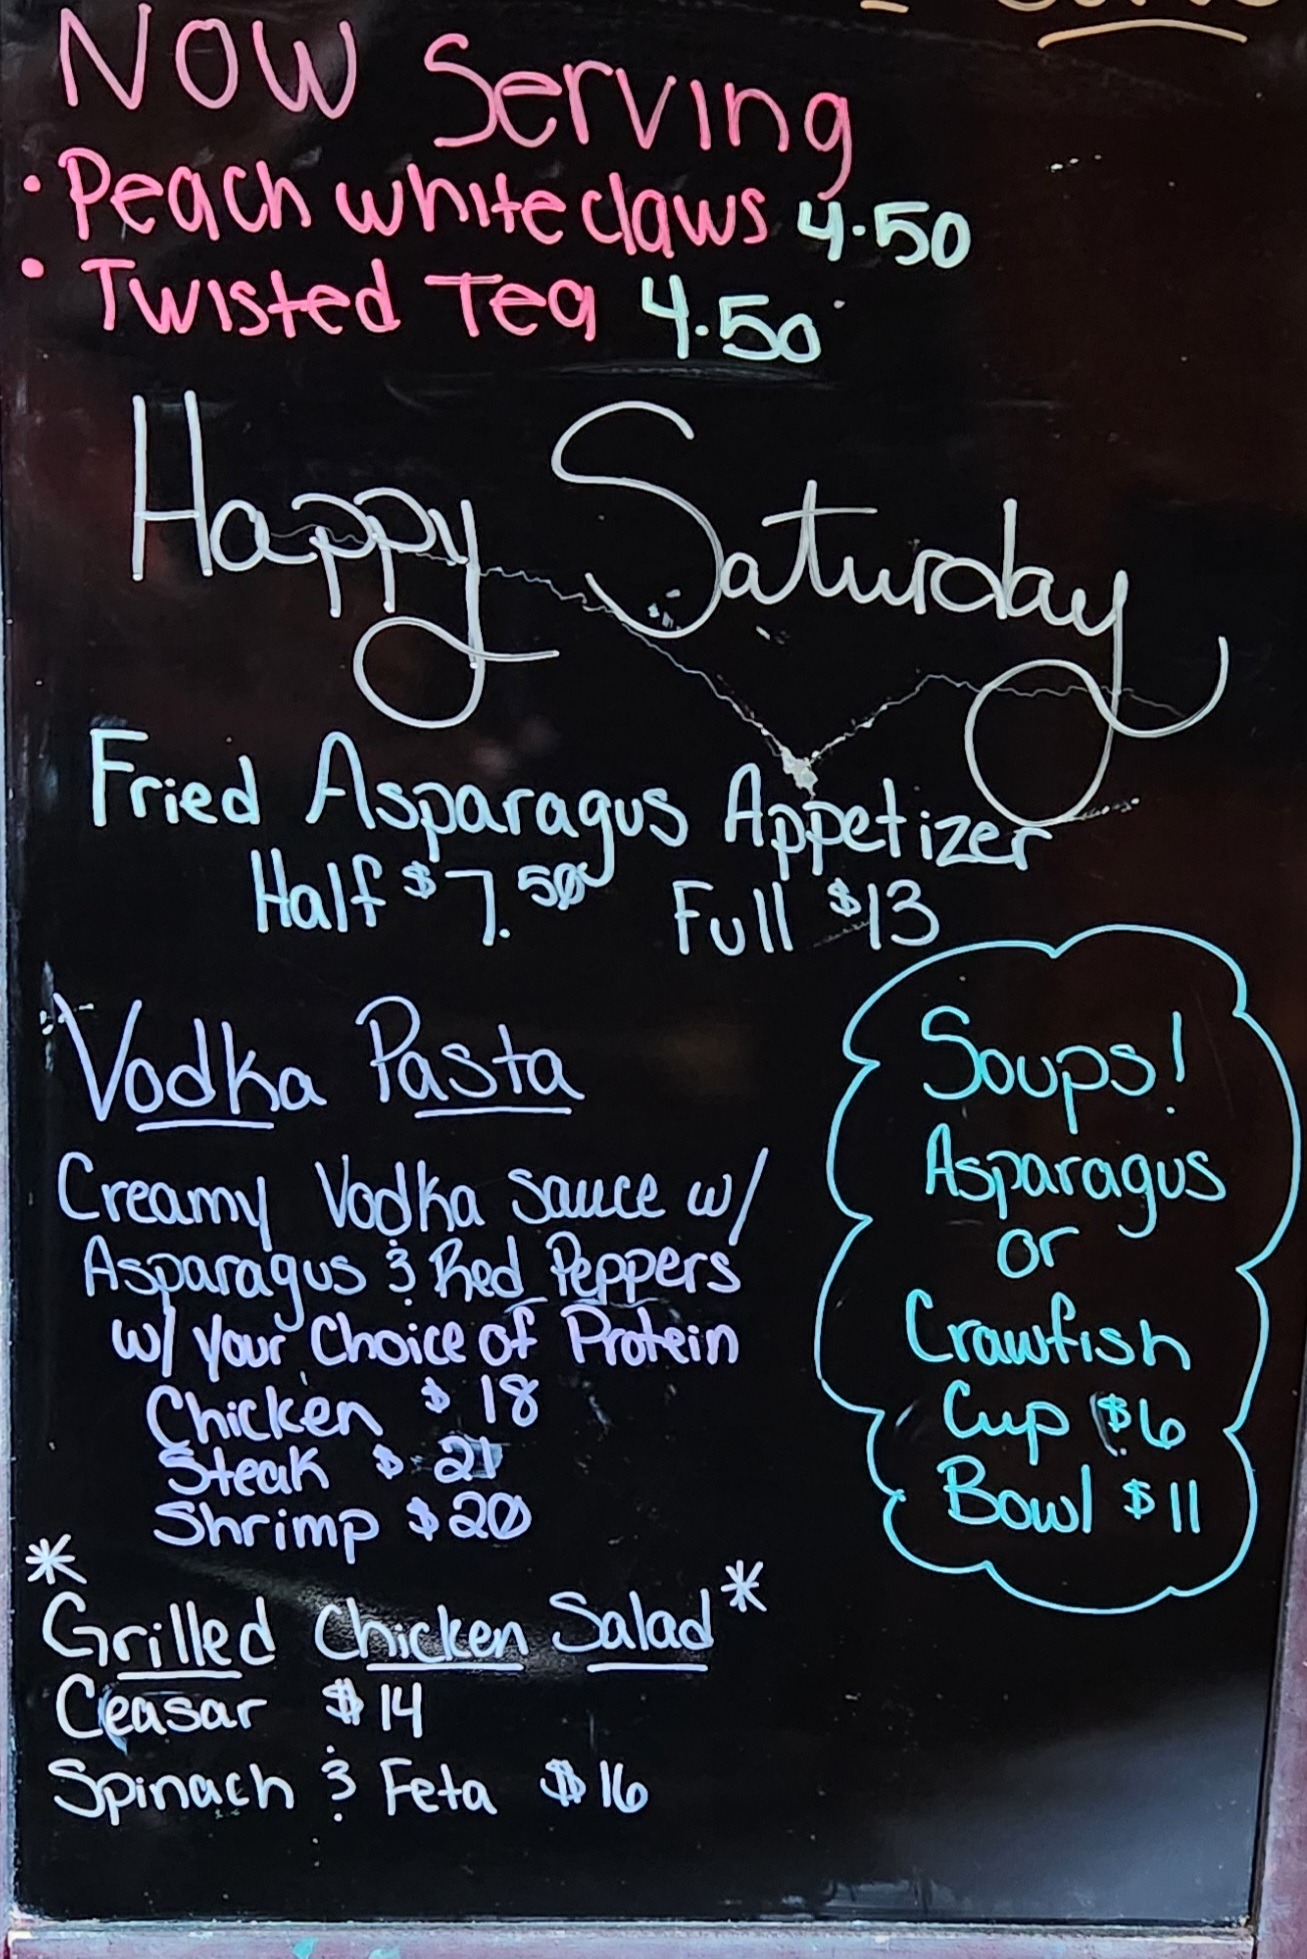 NOW Serving
• Peach whiteclaws 4.50
• Twisted Tea 4.50
Happy Saturday
Fried Asparagus Appetizer
Half $7.50 Full $13
Vodka Pasta
Creamy Vodka Sauce w/
Asparagus & Red Peppers
w/ your Choice of Protein
Chicken $18
Steak $21
Shrimp $20
Soups!
Asparagus
or
Crawfish
Cup $6
Bowl $11
* Grilled Chicken Salad *
Ceasar $14
Spinach & Feta $16